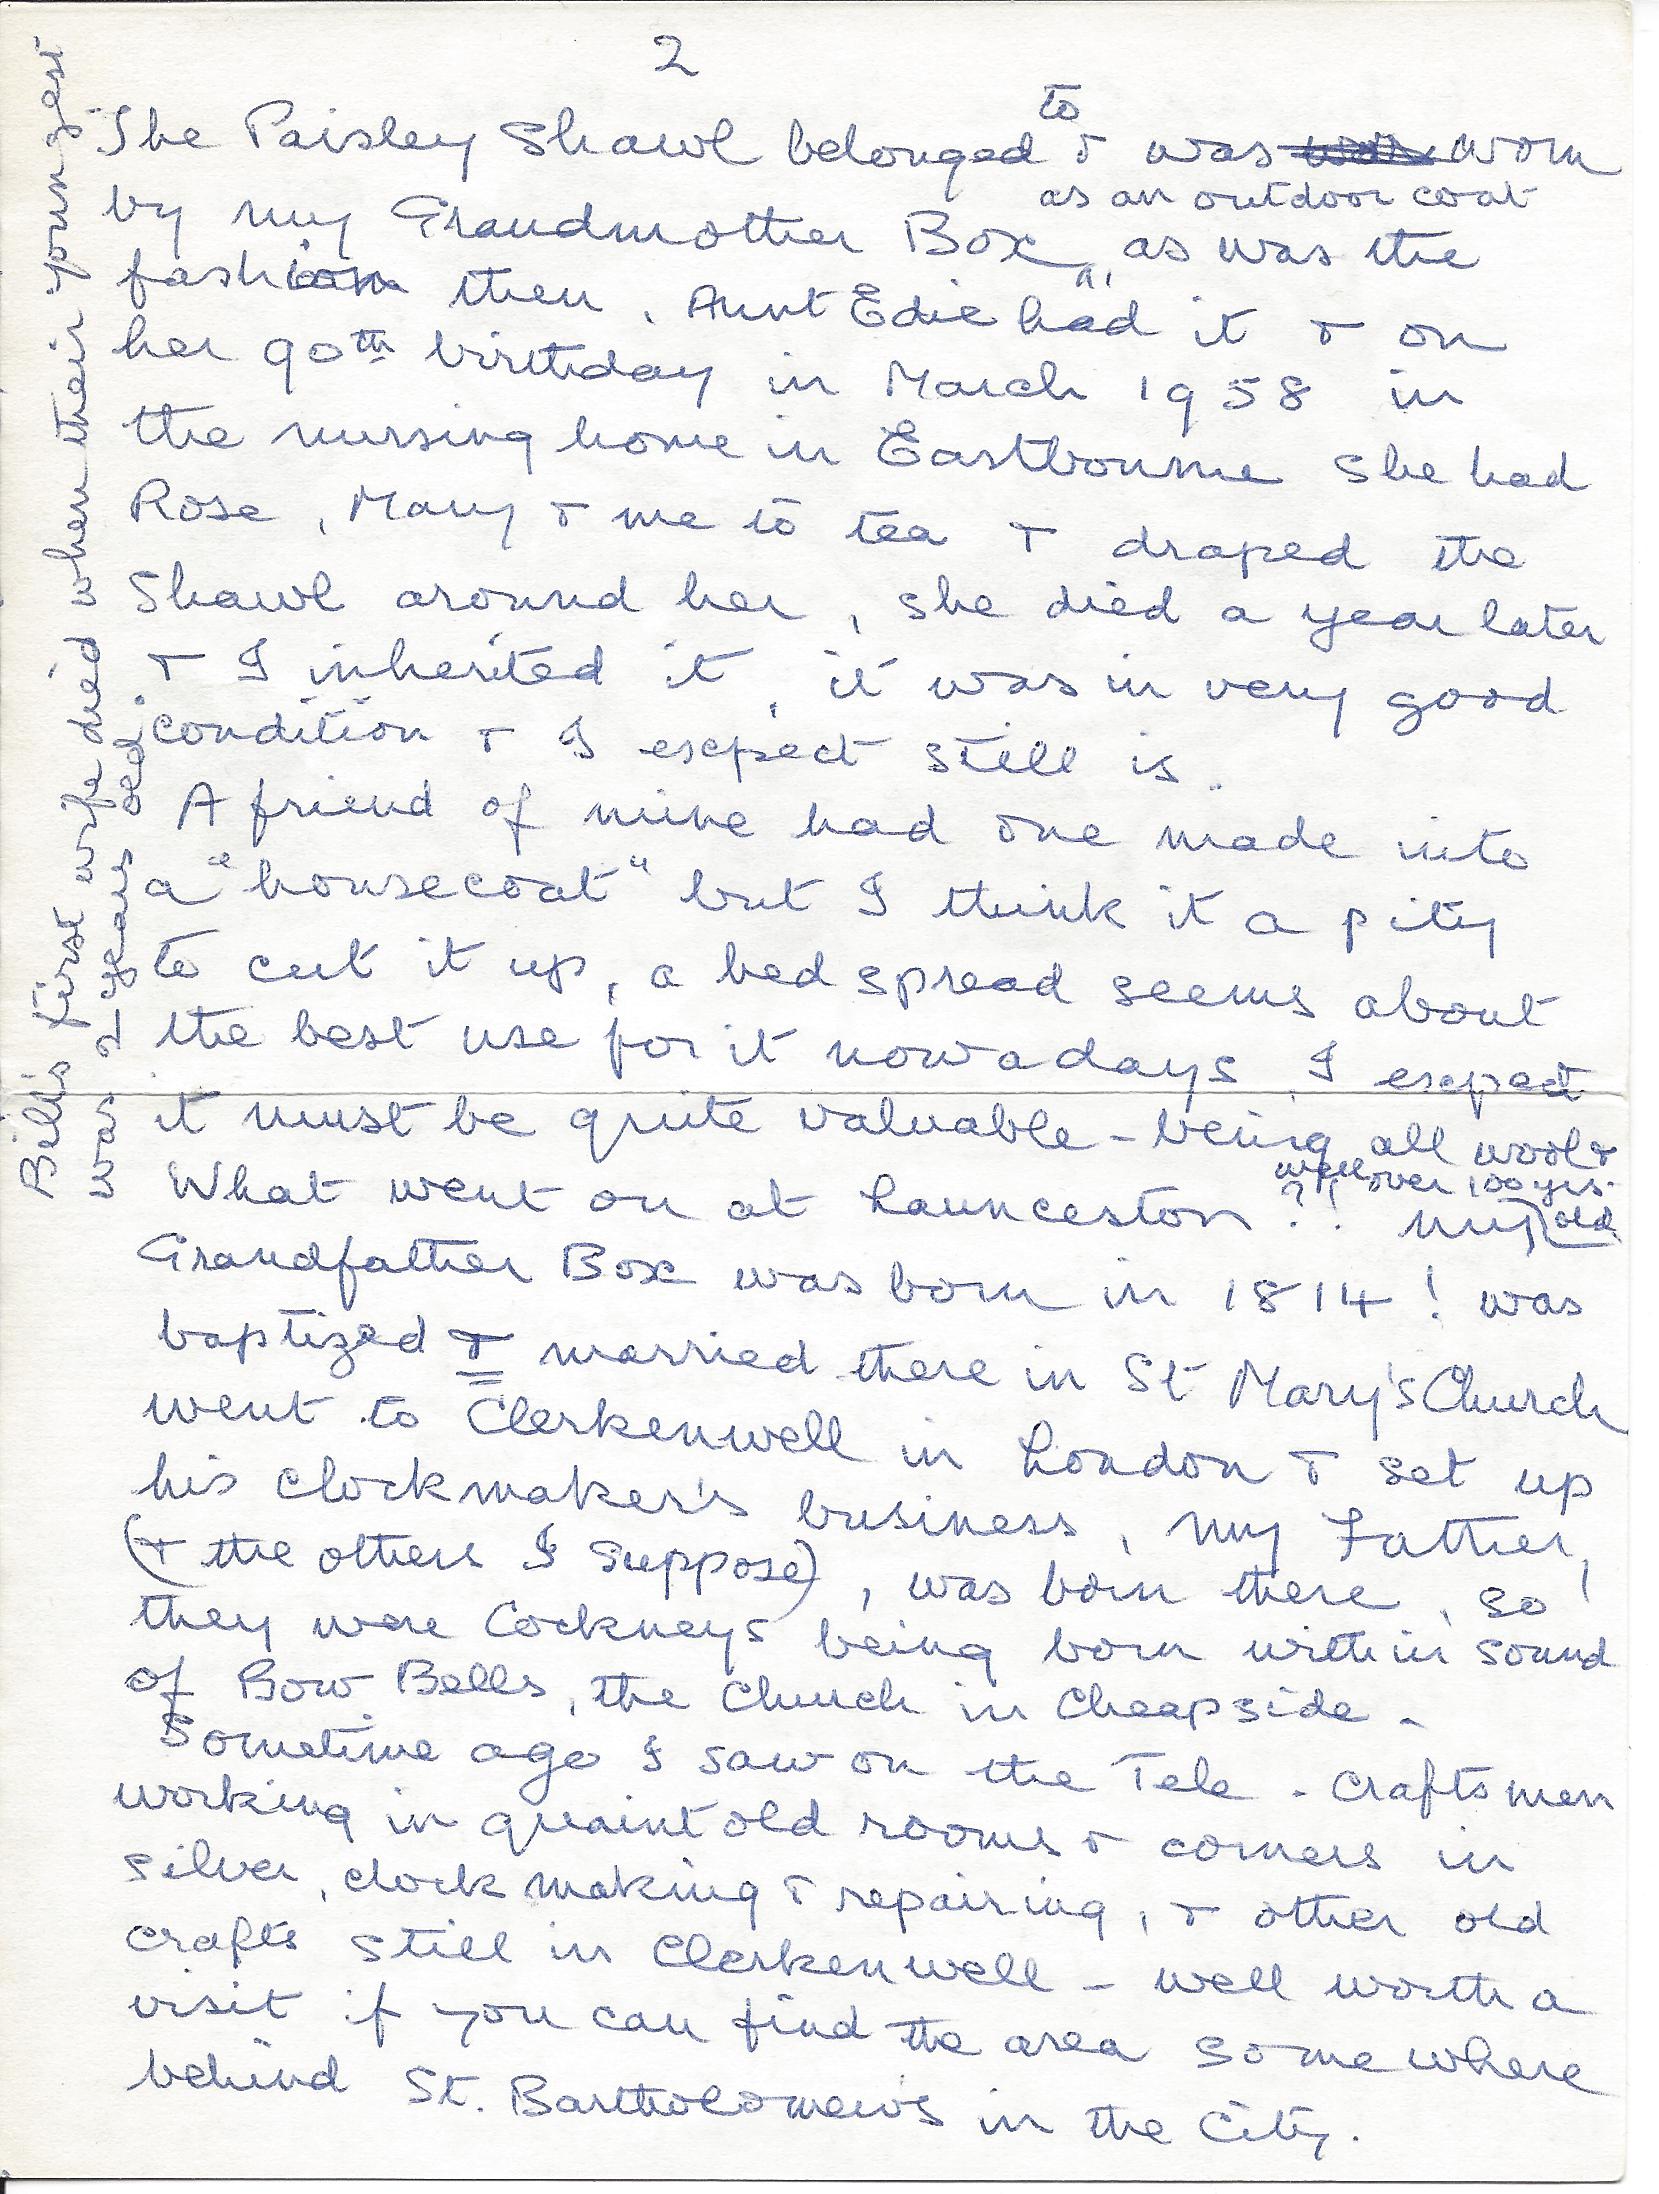 2
to
The Paisley Shawl belonged & was worn
as an outdoor coat
by my Grandmother Box, as was the
fashion then. Aunt Edie had it & on
her 90th birthday in March 1958 in
the nursing home in Eastbourne she had
Rose, Mary & me to tea & draped the
Shawl around her, she died a year later
& I inherited it, it was in very good
condition & I expect still is.
A friend of mine had one made into
a "housecoat" but I think it a pity
to cut it up, a bedspread seems about
the best use for it nowadays, I expect
it must be quite valuable - being all wool &
well over 100 yrs.
old
What went on at Launceston ?! My
Grandfather Box was born in 1814! was
baptized & married there in St Mary's Church
went to Clerkenwell in London & set up
his clockmaker's business, my Father,
(& the others I suppose), was born there, so!
they were Cockneys being born within sound
of Bow Bells, the Church in Cheapside.
Sometime ago I saw on the Tele - craftsmen
working in quaint old rooms & corners in
silver, clock making & repairing, & other old
crafts still in Clerkenwell - well worth a
visit if you can find the area somewhere
behind St. Bartholomew's in the City.
Bill's first wife died when their
was 2 years old.